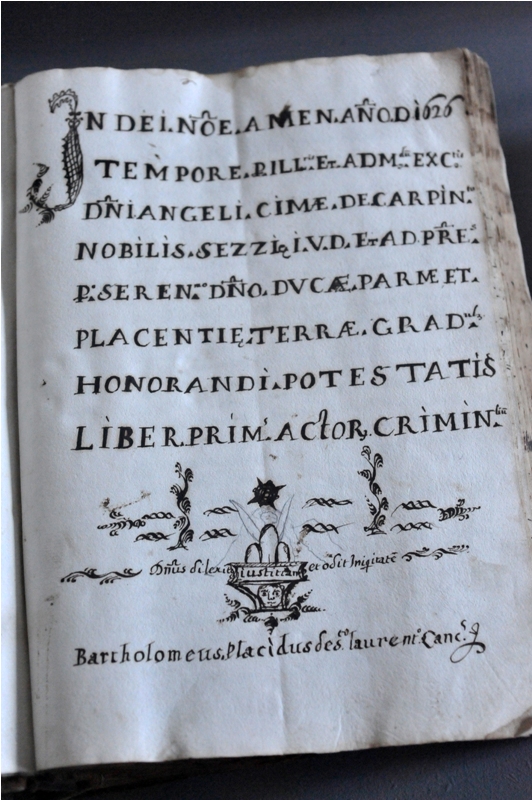 IN DEI. NOE. AMEN. ANO. DI 1626
TEMPORE. P. ILL. ET. ADM. EXC
DNI ANGELI. CIMÆ. DE CARPIN.
NOBILIS. SEZZI I. V. D. ET AD PRE
P. SEREN. DNO. DVCÆ. PARMÆ ET.
PLACENTIĘ. TERRÆ. GRAD
HONORANDI. POTESTATIS
LIBER. PRIM. ACTOR. CRIMIN
Dnus dilexit iustitiam et odit Iniqitatē
Bartholomeus. Placidus de S. laurent Canc.